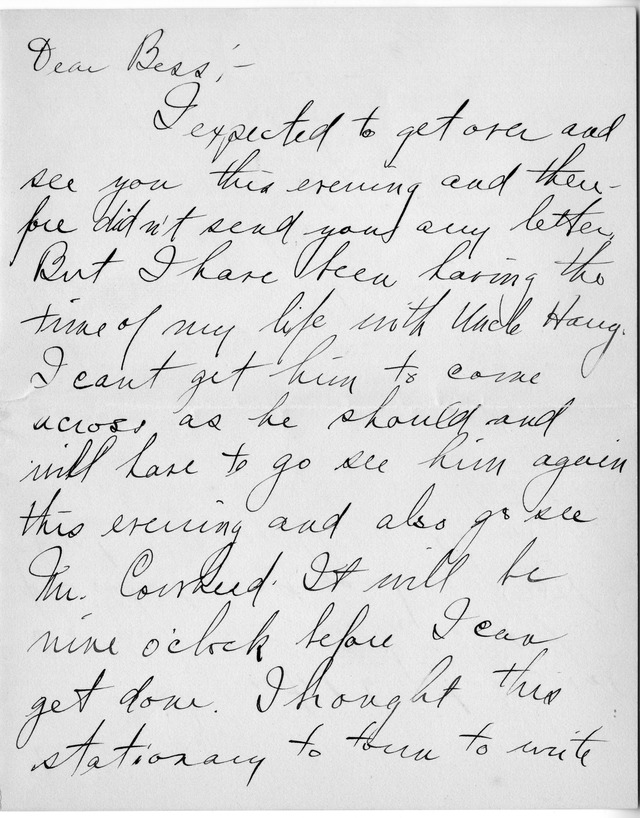 Dear Bess;-
I expected to get over and
see you this evening and there-
fore didn't send you any letter.
But I have been having the
time of my life with Uncle Harry.
I cant get him to come
across as he should and
will have to go see him again
this evening and also go see
Mr. Cowherd. It will be
nine o'clock before I can
get done. I brought this
stationary to town to write